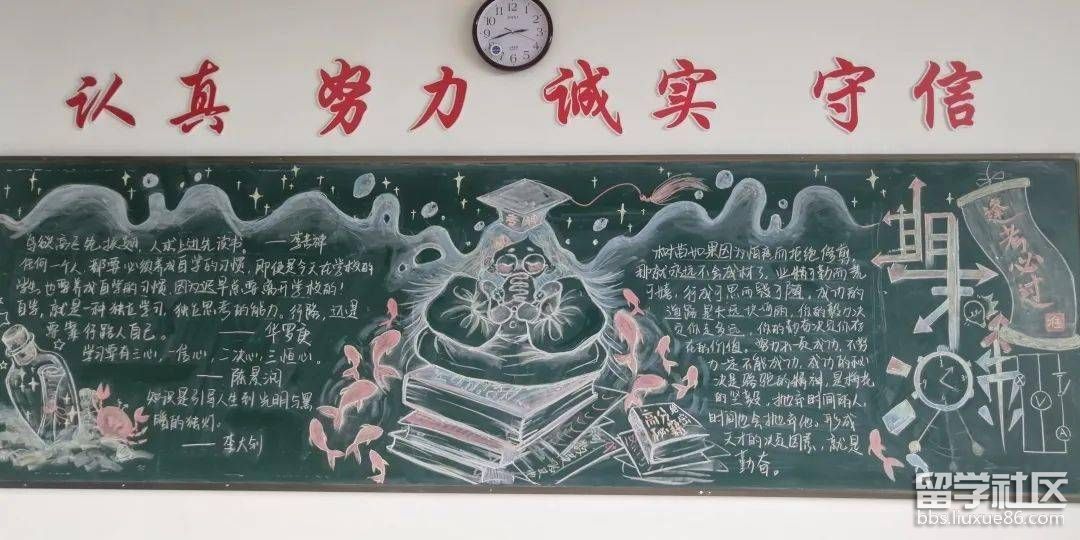 认真 努力 诚实 守信
鸟欲高飞先振翅，人求上进先读书。——李苦禅
任何一个人，都要必须养成自学的习惯，即使是今天在学校的
学生，也要养成自学的习惯，因为迟早总要离开学校的！
自学，就是一种独立学习，独立思考的能力。行路，还是
要靠行路人自己。
——华罗庚
学习要有三心，一信心，二决心，三恒心。
——陈景润
知识是引导人生到光明与黑
暗的
——李大钊
树苗如果因为怕痛而拒绝修剪，
那就永远不会成材了。业精于勤而荒
于嬉，行成于思而毁于随。成功的
道路是
你的努力决
定你走多远，你的勤奋决定你存
在的价值。努力不一定成功，不努
力一定不能成功。成功的秘
决是骆驼的精神，是
的坚毅。抛弃时间的人，
时间也会抛弃他。形成
天才的决定因素，就是
勤奋。
高分
秘籍
期
逢考必过
V
A
留学社区
bbs.liuxue86.com